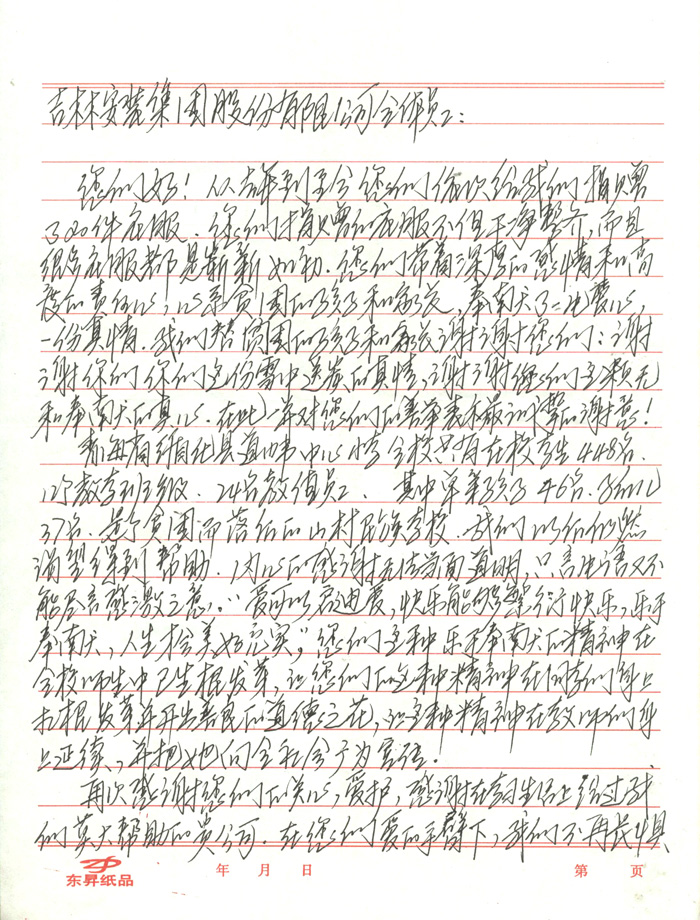 吉林安装集团股份有限公司全体员工:
您们好!从去年到至今您们依次给我们捐赠
了200件衣服.您们捐赠的衣服不但干净整齐,而且
很多衣服都是崭新如初.您们带着深厚的感情和高
度的责任心,心系贫困的孩子和家长,奉献了一片爱心,
一份真情.我们替贫困的孩子和家长谢谢您们:谢
谢你们你们这份雪中送炭的真情,谢谢您们这颗无
私奉献的真心.在此,并对您们的善举表示最诚挚的谢意!
青海省循化县道帏中心小学全校共有在校学生448名.
12个教学班级.24名教值员工.其中单亲孩子46名.孤儿
37名.是个贫困而落后的山村民族学校.我们以仍然
渴望得到帮助.内心的感谢无法当面道明,只言片语又不
能尽言感激之意."爱可以石迪度,快乐能够传递快乐,乐于
奉献,人生格美如充实,"您们这种乐于奉献的精神在
全校师生中已生根发芽,让您们的这种精神在同学们身上
扎根发芽并开出善良的道德之花,让这种精神在教师们身
上延续,并把她向全社会广为宣传.
再次感谢您们的关心,爱护,感谢在学习生活上给过我
们莫大帮助的贵公司.在您们爱的手臂下,我们不再畏惧
东昇纸品
年 月 日
第 页